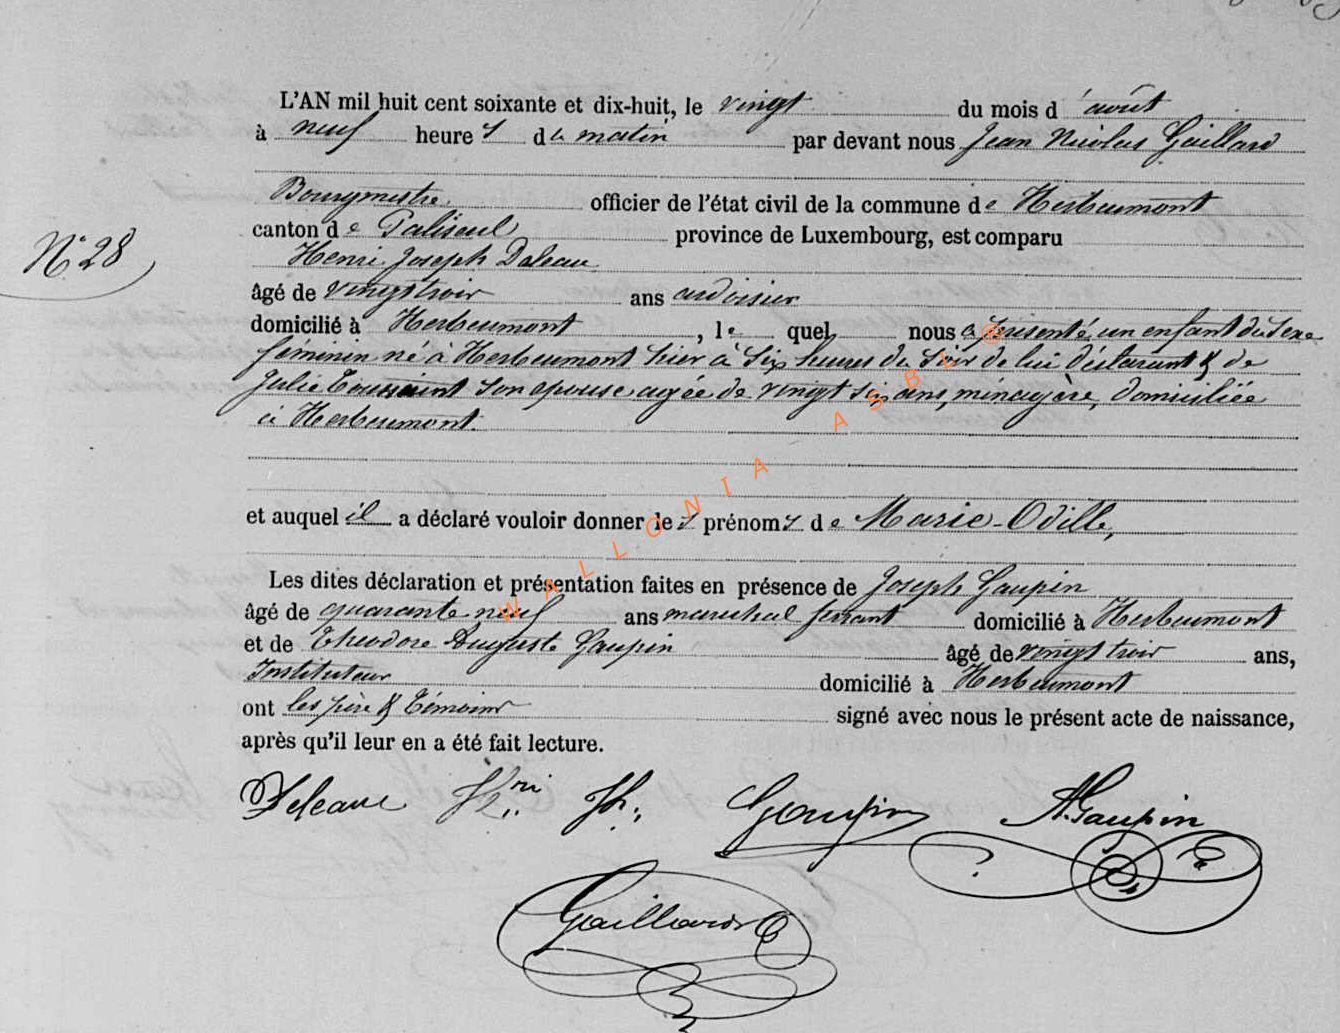 L'AN mil huit cent soixante et dix-huit, le vingt du mois d'août
à neuf heures du matin par devant nous Jean Nicolas Gaillard
Bourgmestre officier de l'état civil de la commune de Herbeumont
N° 28
canton de Paliseul province de Luxembourg, est comparu
Henri Joseph Deleau
âgé de vingt trois ans ardoisier
domicilié à Herbeumont, le quel nous a présenté un enfant du sexe
feminin né à Herbeumont hier à six heures du soir de lui déclarant & de
Julie Toussaint son epouse agée de vingt six ans, ménagère, domiciliée
à Herbeumont.
et auquel il a déclaré vouloir donner les prénoms de Marie-Odille,
Les dites déclaration et présentation faites en présence de Joseph Gaupin
âgé de quarante neuf ans marechal ferrant domicilié à Herbeumont
et de Théodore Auguste Gaupin âgé de vingt trois ans,
Instituteur domicilié à Herbeumont
ont les père & témoins signé avec nous le présent acte de naissance,
après qu'il leur en a été fait lecture.
Deleau Hri Jh. Gaupin A. Gaupin
Gaillard
WALLONIA ASBL ©